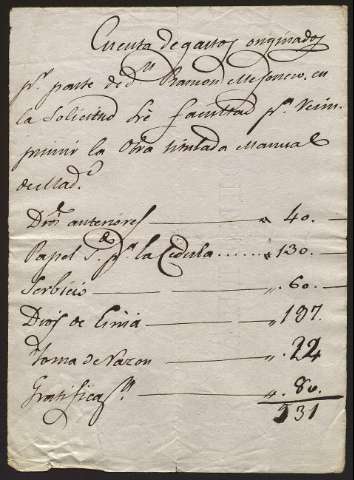 Cuenta de gastos originados
pr. parte de dn. Ramon Mesonero, en
la Solicitud de facultad pa. reim-
primir la Obra titulada Manual
de Mad.d
Dros anteriores " 40.
Papel pa. la Cedula " 130.
Serbicio " 60.
Dros de 137.
Toma de Razon " 22
Gratificacn. " 80.
531